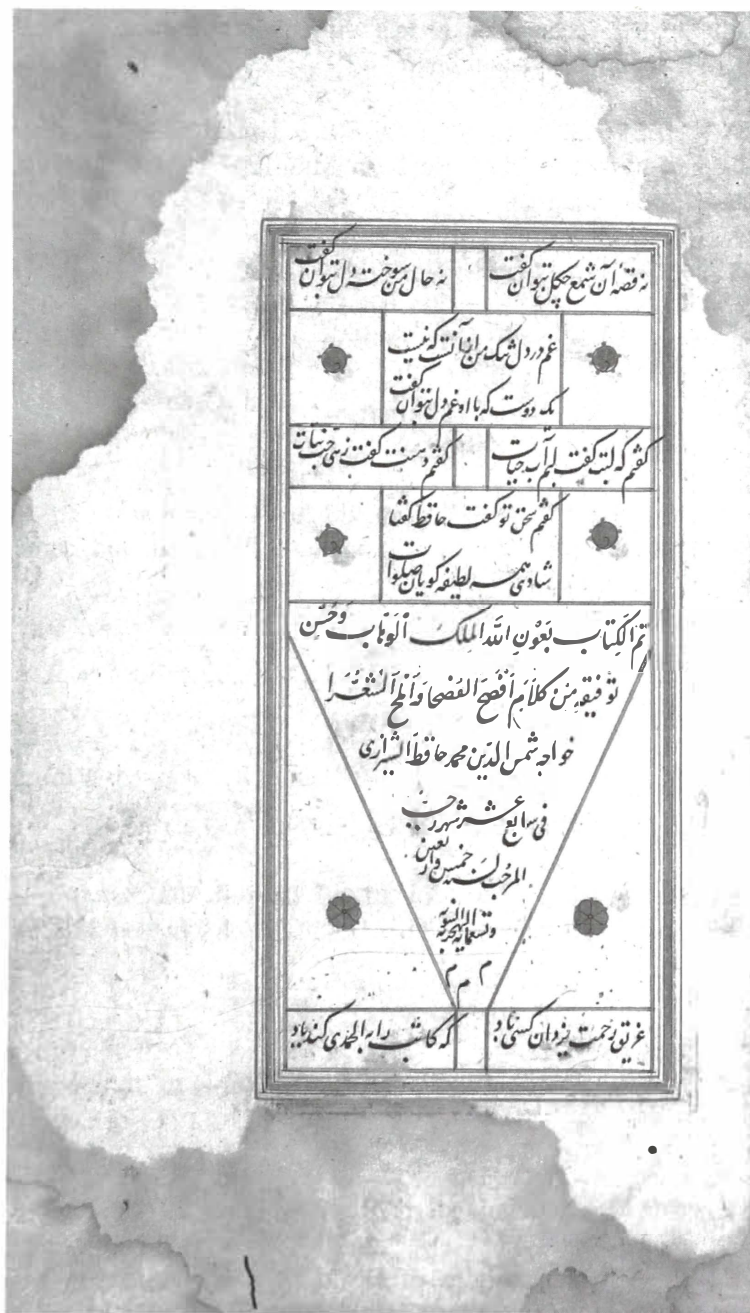 نه قصهٔ آن شمع چگل بتوان گفت
نه حال من سوخته دل بتوان گفت
غم در دل تنک من از آنست که نیست
یک دوست که با او غم دل بتوان گفت
گفتم که لبت گفت لبم آب حیات
گفتم دهنت گفت زهی حب نبات
گفتم سخن تو گفت حافظ گفتا
شادی همه لطیفه کویان صلوات
تم الکتاب بعون الله الملک الوهاب وحسن
توفیقه من کلام افصح الفصحا و املح الشعرا
خواجه شمس الدین محمد حافظ الشیرازی
فی سابع عشر شهر رجب
المرجب لسنه خمس و اربعین
وتسعمایه الهجریه النبویه
م م م
غریق رحمت یزدان کسی باد
که کاتب را به الحمدی کند یاد